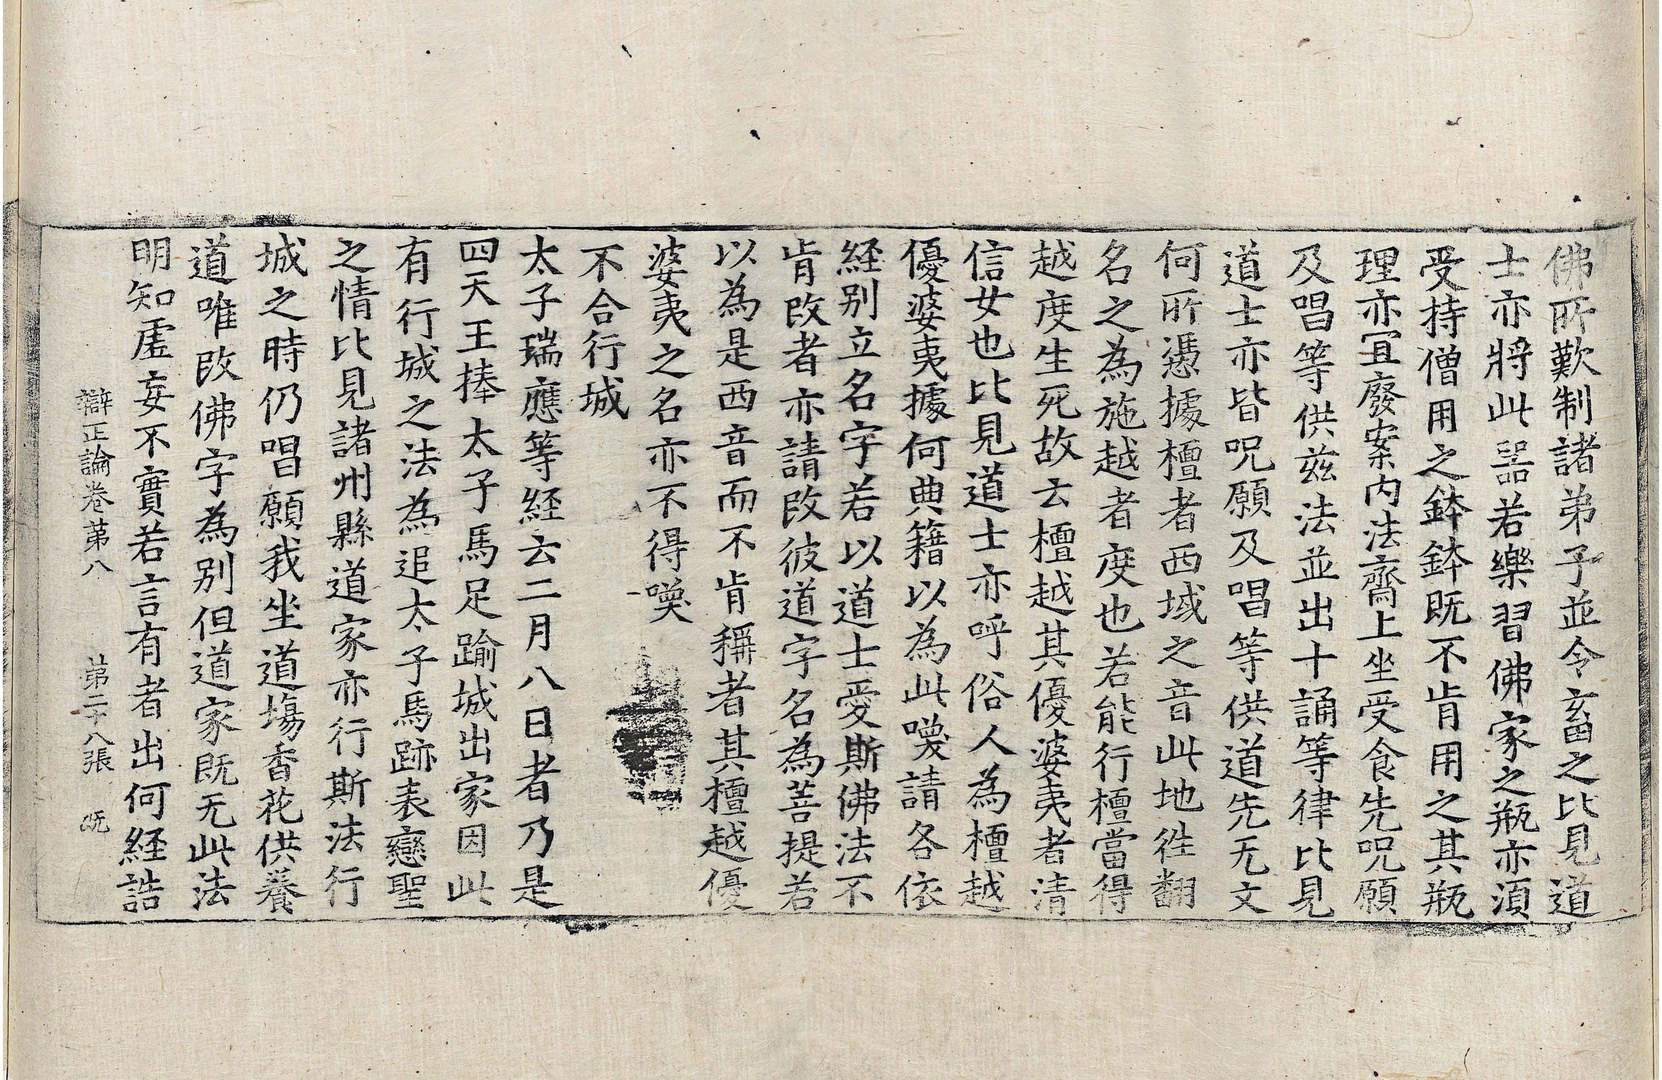 佛所歎制諸弟子並令畜之比見道
士亦將此噐若樂習佛家之瓶亦湏
受持僧用之鉢鉢既不肯用之其瓶
理亦冝廢案内法齋上坐受食先呪願
及唱等供兹法並出十誦等律比見
道士亦皆呪願及唱等供道先无文
何所憑據檀者西域之音此地徃翻
名之為施越者度也若能行檀當得
越度生死故云檀越其優婆夷者清
信女也比見道士亦呼俗人為檀越
優婆夷據何典籍以為此喚請各依
経别立名字若以道士愛斯佛法不
肯改者亦請改彼道字名為菩提若
以為是西音而不肯稱者其檀越優
婆夷之名亦不得喚
不合行城
太子瑞應等経云二月八日者乃是
四天王捧太子馬足踰城出家因此
有行城之法為追太子馬跡表戀聖
之情比見諸州縣道家亦行斯法行
城之時仍唱願我坐道塲香花供養
道唯改佛字為别但道家既无此法
明知虛妄不實若言有者出何経誥
辯正論卷第八 第二十八張 既